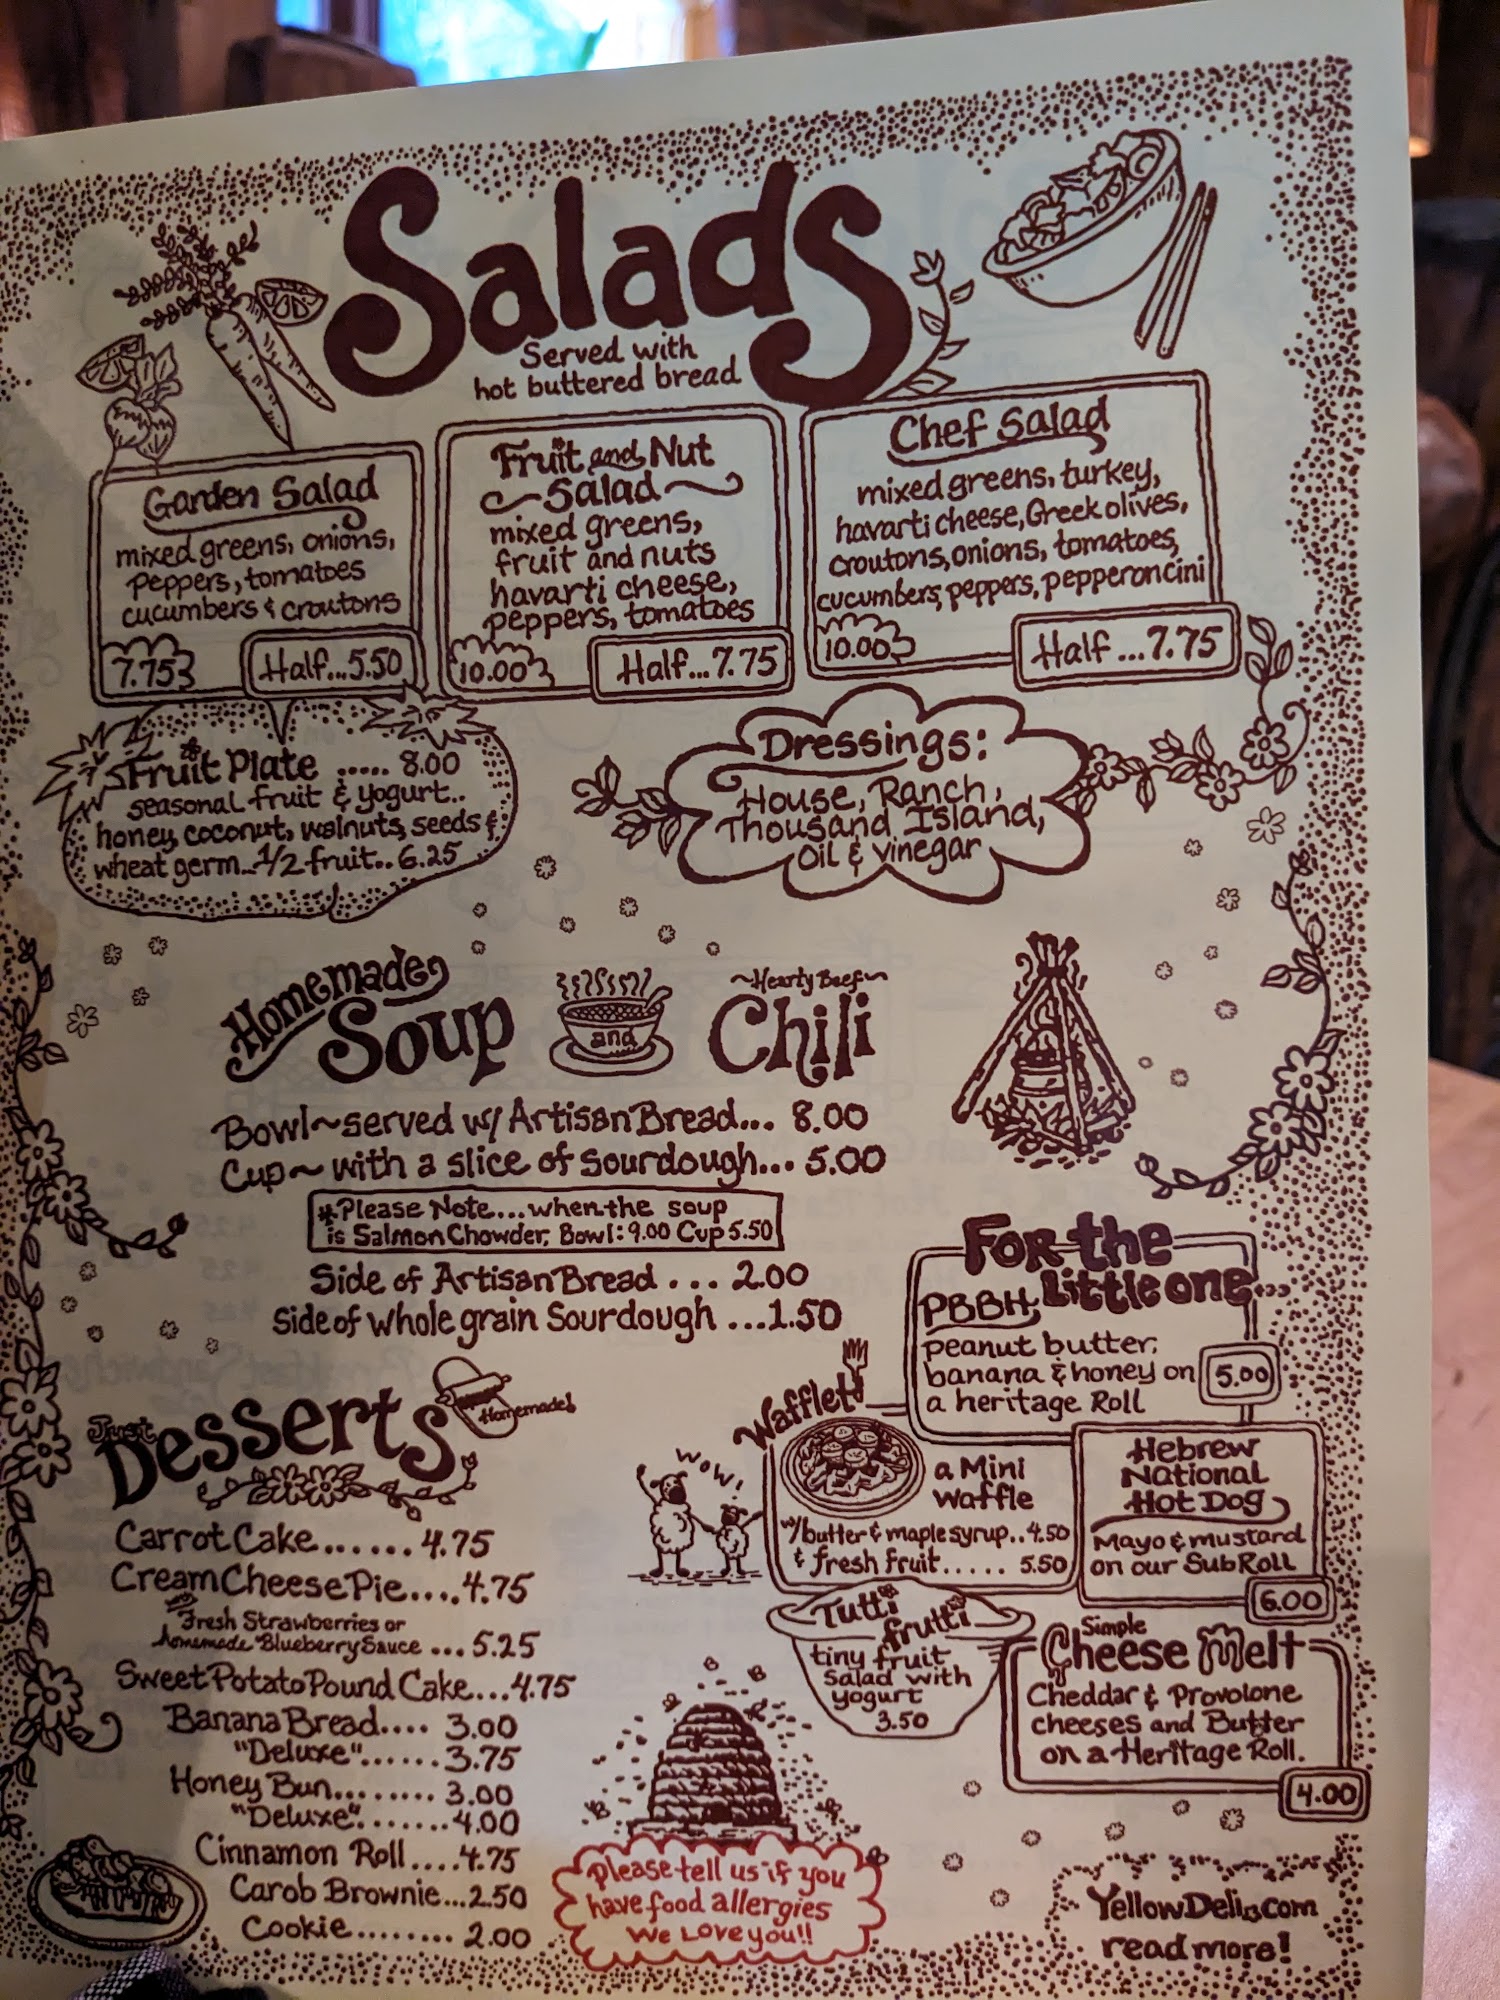 Salads
Served with
hot buttered bread
Garden Salad
mixed greens, onions,
peppers, tomatoes
cucumbers & croutons
7.75
Half...5.50
Fruit and Nut
Salad
mixed greens,
fruit and nuts
havarti cheese,
peppers, tomatoes
10.00
Half...7.75
Chef Salad
mixed greens, turkey,
havarti cheese, Greek olives,
croutons, onions, tomatoes,
cucumbers, peppers, pepperoncini
10.00
Half...7.75
Fruit Plate ..... 8.00
seasonal fruit & yogurt..
honey, coconut, walnuts, seeds &
wheat germ...1/2 fruit.. 6.25
Dressings:
House, Ranch,
Thousand Island,
Oil & Vinegar
Homemade
Soup
and
~Hearty Beef~
Chili
Bowl~served w/ Artisan Bread... 8.00
Cup~ with a slice of sourdough... 5.00
*Please Note...when the soup
is Salmon Chowder, Bowl: 9.00 Cup 5.50
Side of Artisan Bread ... 2.00
Side of whole grain Sourdough ...1.50
For the
Little one...
PBBH,
peanut butter,
banana & honey on
a heritage Roll
5.00
Wafflet
a Mini
Waffle
w/butter & maple syrup..4.50
& fresh fruit..... 5.50
WOW!
Hebrew
National
Hot Dog
Mayo & mustard
on our Sub Roll
6.00
Tutti
frutti
tiny fruit
salad with
yogurt
3.50
Simple
Cheese Melt
Cheddar & Provolone
cheeses and Butter
on a Heritage Roll.
4.00
Just
Desserts
Homemade!
Carrot Cake......4.75
Cream Cheese Pie....4.75
with
Fresh Strawberries or
homemade Blueberry Sauce ...5.25
Sweet Potato Pound Cake...4.75
Banana Bread.... 3.00
"Deluxe"......3.75
Honey Bun........ 3.00
"Deluxe".......4.00
Cinnamon Roll....4.75
Carob Brownie...2.50
Cookie........ 2.00
Please tell us if you
have food allergies
We Love you!!
YellowDeli.com
read more!